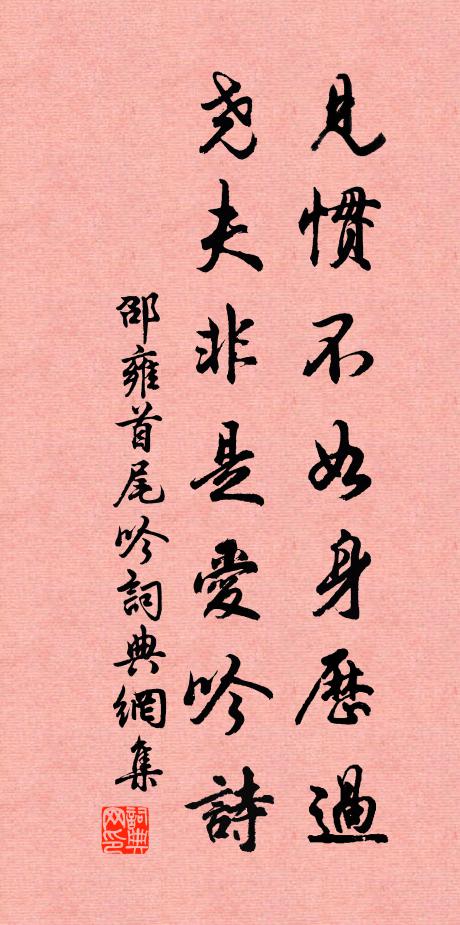 見慣不如身歷過
堯夫非是愛吟詩
邵雍首尾吟詞典網集
詞典網印